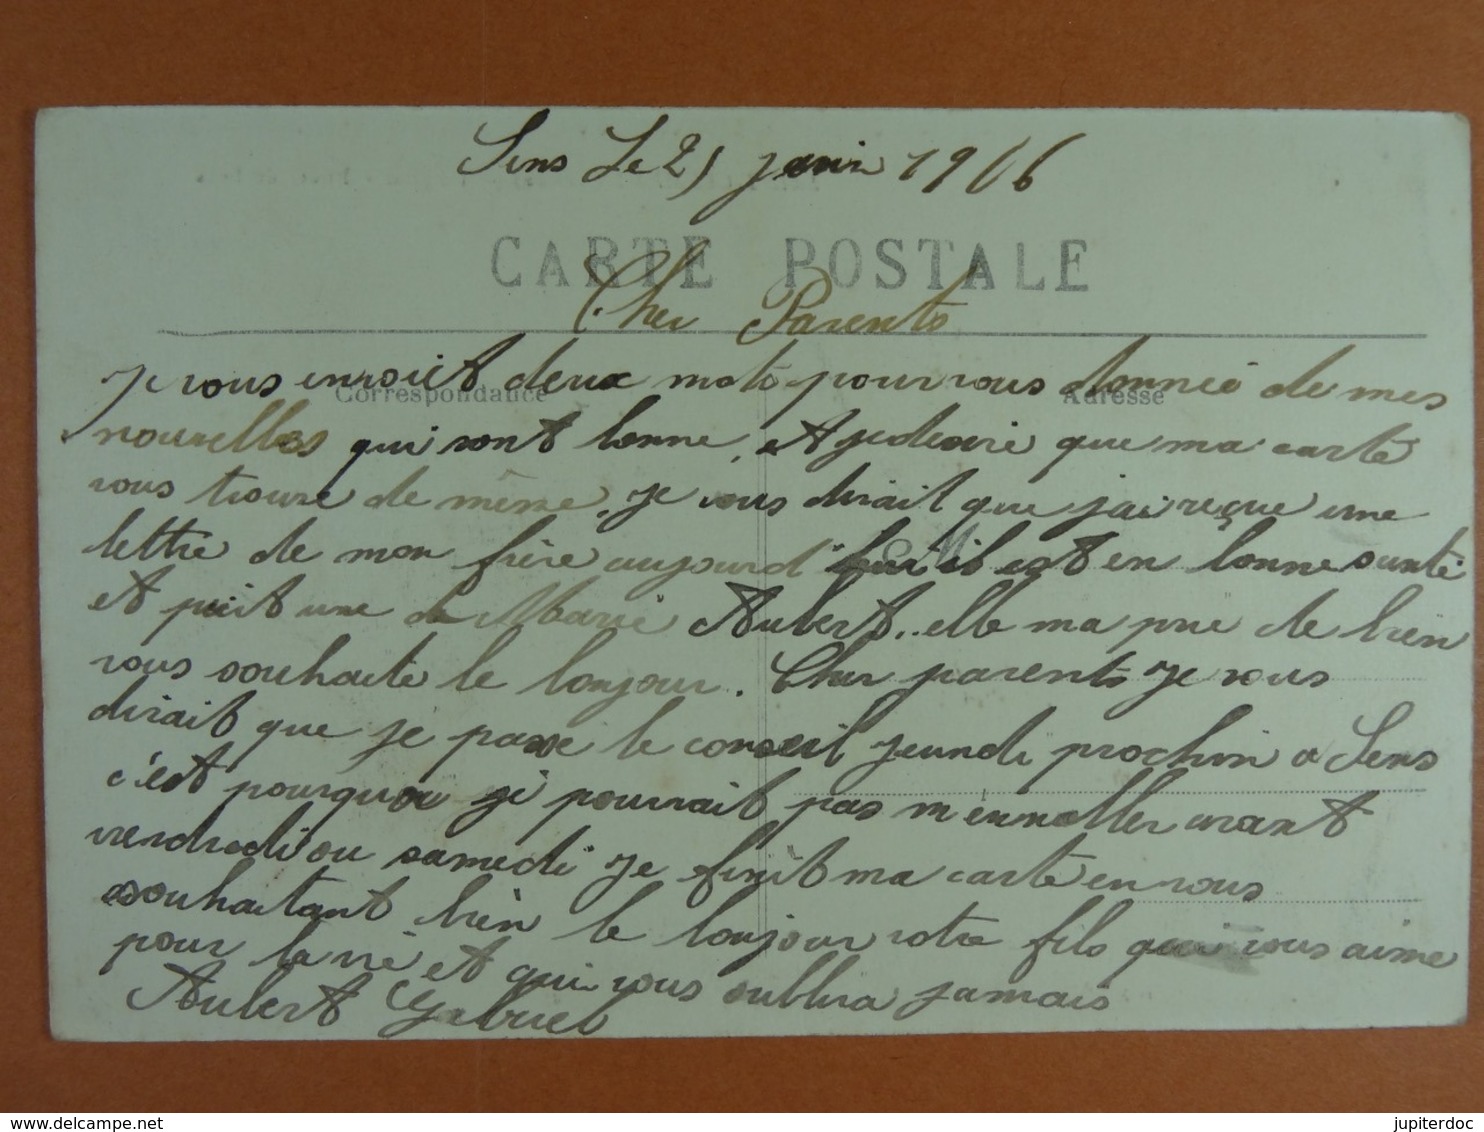 Sens Le 25 janvi 1906
CARTE POSTALE
Cher Parents
Correspondance
Adresse
Je vous envoiet deux mots pour vous donneé de mes
nouvelles qui sont bonne, et je desire que ma carte
vous trouve de même, je vous dirait que j'ai reçue une
lettre de mon frère aujourd'hui il est en bonne santé
et puit une de Marie Aubert, elle ma prie de bien
vous souhaite le bonjour. Cher parents Je vous
dirait que je passe le conseil jeundi prochin a Sens
c'est pourquoi je pourrait pas m'ennaller avant
vendredi ou samedi Je finit ma carte en vous
souhaitant bien le bonjour votre fils qui vous aime
pour la vie et qui vous oublira jamais
Aubert Gabriel
delcampe.net
jupiterdoc